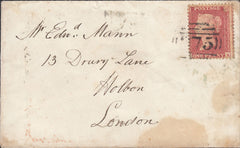 Mr Edwd. Mann
75
13 Drury Lane
Holbon
London